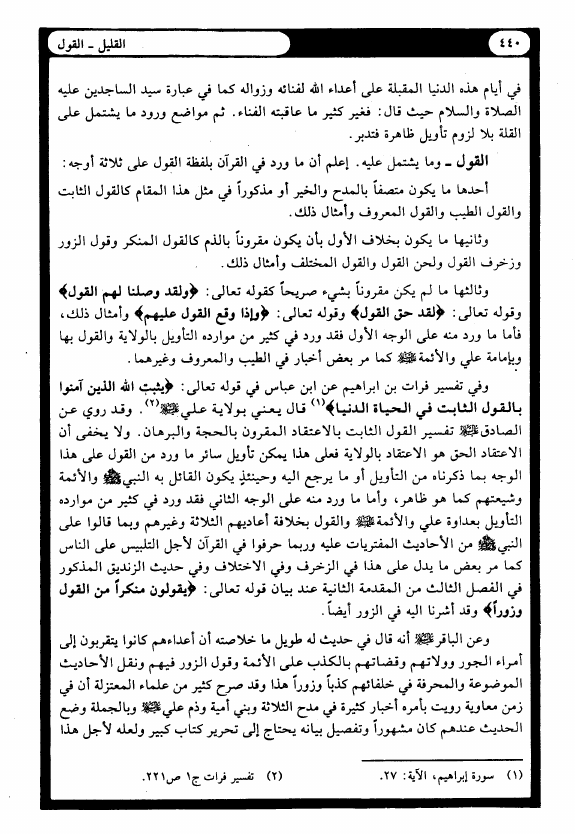 ٤٤٠
القليل ـ القول
في أيام هذه الدنيا المقبلة على أعداء الله لفنائه وزواله كما في عبارة سيد الساجدين عليه
الصلاة والسلام حيث قال: فغير كثير ما عاقبته الفناء. ثم مواضع ورود ما يشتمل على
القلة بلا لزوم تأويل ظاهرة فتدبر.
القول ـ وما يشتمل عليه. إعلم أن ما ورد في القرآن بلفظة القول على ثلاثة أوجه:
أحدها ما يكون متصفاً بالمدح والخير أو مذكوراً في مثل هذا المقام كالقول الثابت
والقول الطيب والقول المعروف وأمثال ذلك.
وثانيها ما يكون بخلاف الأول بأن يكون مقروناً بالذم كالقول المنكر وقول الزور
وزخرف القول ولحن القول والقول المختلف وأمثال ذلك.
وثالثها ما لم يكن مقروناً بشيء صريحاً كقوله تعالى: ﴿ولقد وصلنا لهم القول﴾
وقوله تعالى: ﴿لقد حق القول﴾ وقوله تعالى: ﴿وإذا وقع القول عليهم﴾ وأمثال ذلك،
فأما ما ورد منه على الوجه الأول فقد ورد في كثير من موارده التأويل بالولاية والقول بها
وبإمامة علي والأئمة ﷺ كما مر بعض أخبار في الطيب والمعروف وغيرهما.
وفي تفسير فرات بن ابراهيم عن ابن عباس في قوله تعالى: ﴿يثبت الله الذين آمنوا
بالقول الثابت في الحياة الدنيا﴾(١) قال يعني بولاية علي ﷺ(٢). وقد روي عن
الصادق ﷺ تفسير القول الثابت بالاعتقاد المقرون بالحجة والبرهان. ولا يخفى أن
الاعتقاد الحق هو الاعتقاد بالولاية فعلى هذا يمكن تأويل سائر ما ورد من القول على هذا
الوجه بما ذكرناه من التأويل أو ما يرجع اليه وحينئذٍ يكون القائل به النبي ﷺ والأئمة
وشيعتهم كما هو ظاهر، وأما ما ورد منه على الوجه الثاني فقد ورد في كثير من موارده
التأويل بعداوة علي والأئمة ﷺ والقول بخلافة أعاديهم الثلاثة وغيرهم وبما قالوا على
النبي ﷺ من الأحاديث المفتريات عليه وربما حرفوا في القرآن لأجل التلبيس على الناس
كما مر بعض ما يدل على هذا في الزخرف وفي الاختلاف وفي حديث الزنديق المذكور
في الفصل الثالث من المقدمة الثانية عند بيان قوله تعالى: ﴿يقولون منكراً من القول
وزوراً﴾ وقد أشرنا اليه في الزور أيضاً.
وعن الباقر ﷺ أنه قال في حديث له طويل ما خلاصته أن أعداءهم كانوا يتقربون إلى
أمراء الجور وولاتهم وقضاتهم بالكذب على الأئمة وقول الزور فيهم ونقل الأحاديث
الموضوعة والمحرفة في خلفائهم كذباً وزوراً هذا وقد صرح كثير من علماء المعتزلة أن في
زمن معاوية رويت بأمره أخبار كثيرة في مدح الثلاثة وبني أمية وذم علي ﷺ وبالجملة وضع
الحديث عندهم كان مشهوراً وتفصيل بيانه يحتاج إلى تحرير كتاب كبير ولعله لأجل هذا
(١) سورة إبراهيم، الآية: ٢٧. (٢) تفسير فرات ج١ ص٢٢١.